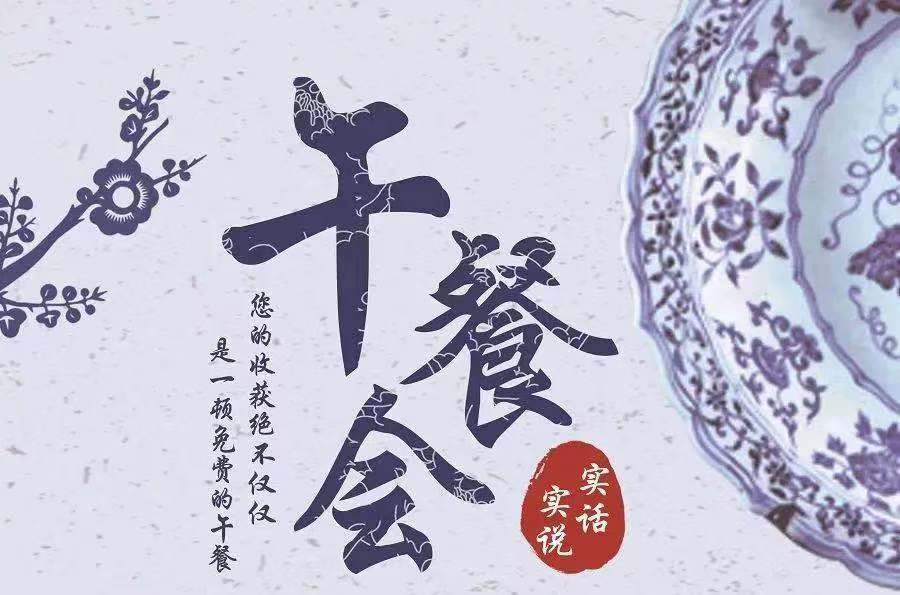 午餐会
您的收获绝不仅仅
是一顿免费的午餐
实话
实说